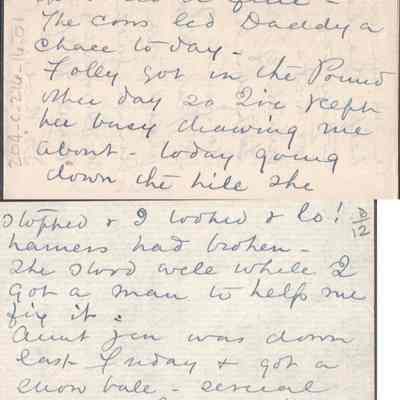 The cows led Daddy a
chace today -
Folly got in the Pound
other day so I've kept
her busy drawing me
about - today going
down the hill she
stopped & I looked & lo!
harness had broken -
She stood well while I
got a man to help me
fix it.
Aunt Jen was down
last Friday & got a
snow bale -